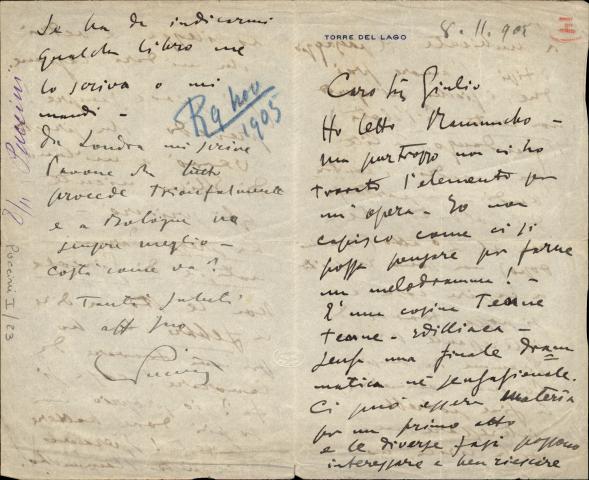 TORRE DEL LAGO
8.11.905
Caro Sig Giulio
Ho letto Ramuncho -
ma purtroppo non ci ho
trovato l'elemento per
un' opera - Io non
capisco come si
possa pensare per farne
un melodramma! -
È una cosina tenue
tenue - idilliaca -
senza una finale dram
matica nè sensazionale.
Ci può essere materia
per un primo atto
e le diverse fasi possono
interessare e ben riescire
Se ha da indicarmi
qualche libro me
lo scriva o mi
mandi -
Da Londra mi scrive
Pavone che tutto
procede trionfalmente
e a Bologna va
sempre meglio -
costì come va?
Tanti saluti
aff suo
Puccini
R 9 nov
1905
8/11 Puccini
Puccini I / 23